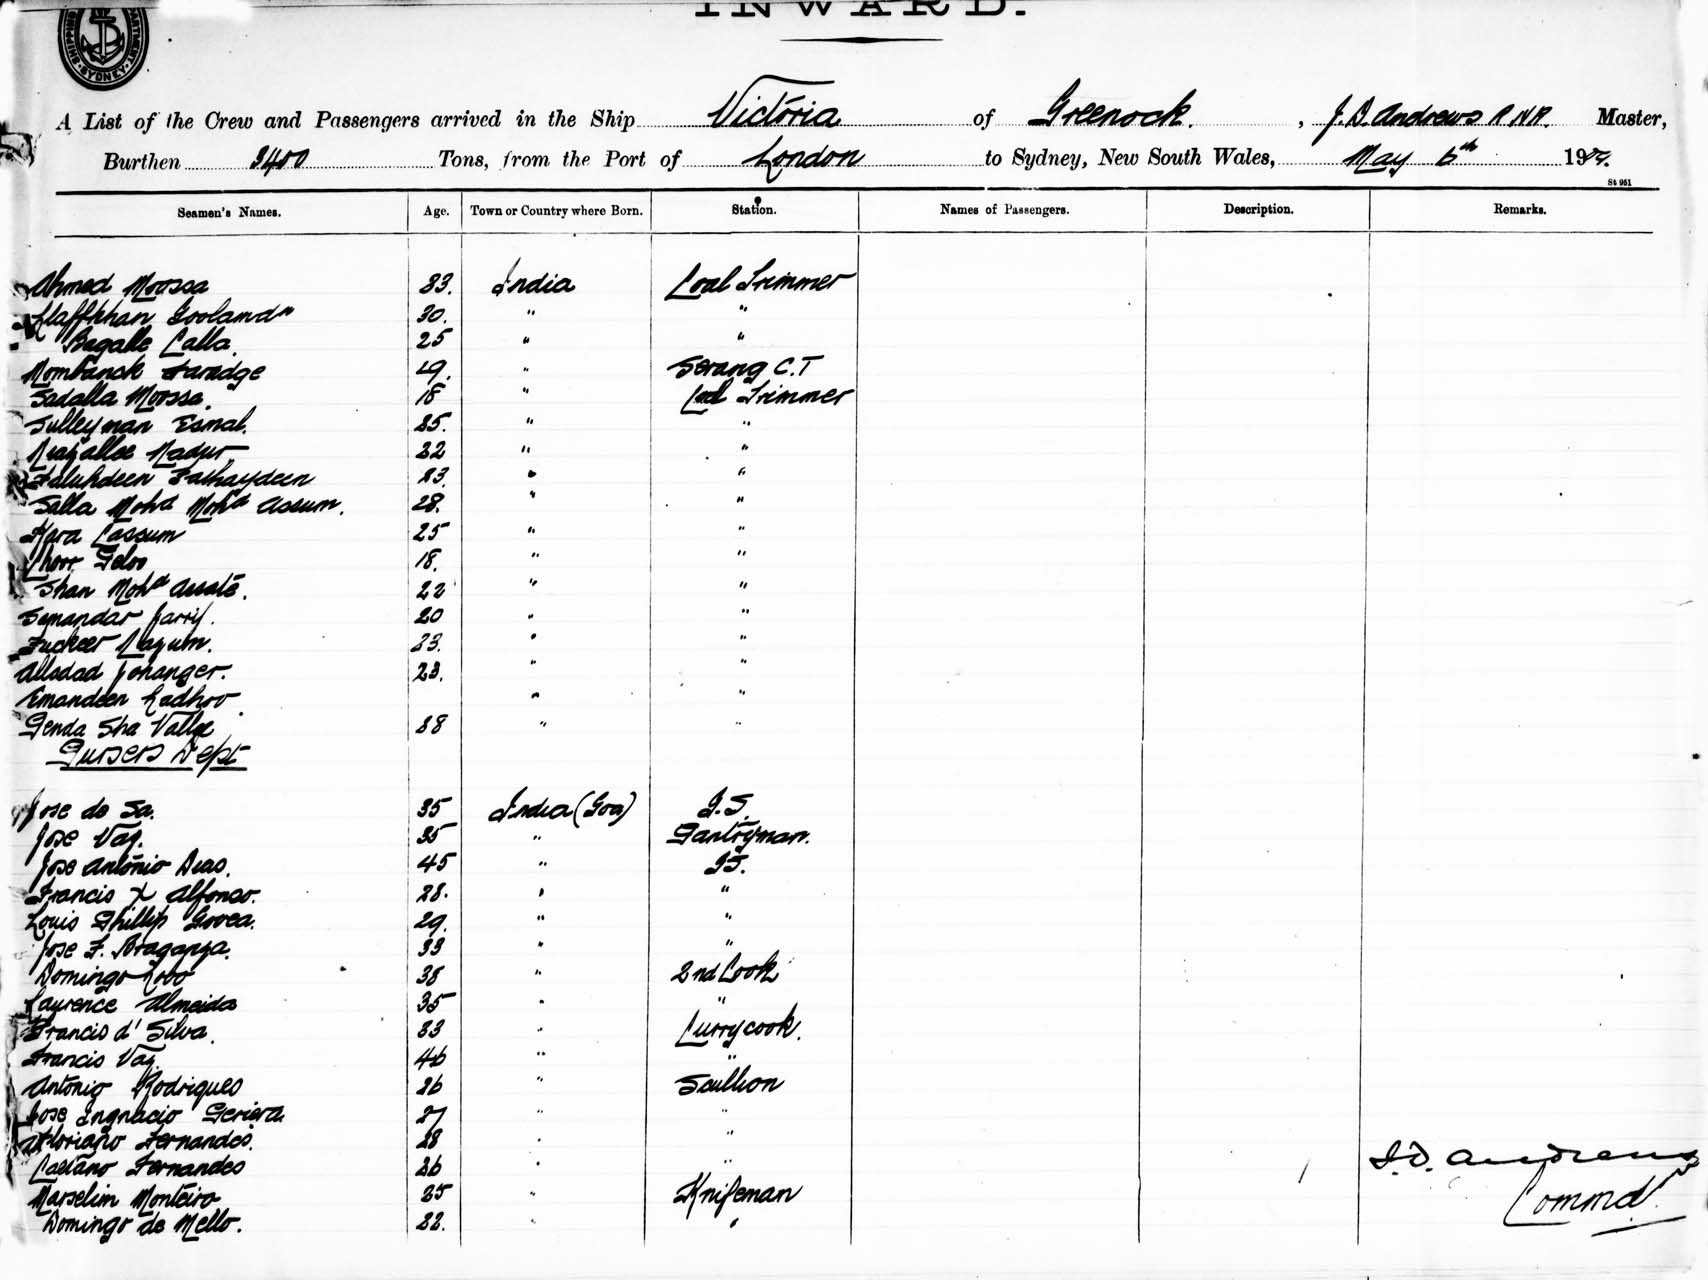 INWARD.
SHIPPING DEPARTMENT, SYDNEY
A List of the Crew and Passengers arrived in the Ship Victoria of Greenock. , J. D. Andrews R.N.R. Master,
Burthen 3400 Tons, from the Port of London to Sydney, New South Wales, May 6th 19
St 951
Seamen's Names. Age. Town or Country where Born. Station. Names of Passengers. Description. Remarks.
Ahmed Moossa 33. India Coal Trimmer
Goolamdn 30. " "
Bagalle Calla. 25 " "
Faredge 49. " Serang C.T
Sadalla Moossa. 18 " Coal Trimmer
Sulleyman Esmal. 35. " "
Nadur 22 " "
Fathaydeen 23. " "
Salla Mohd Mohd Assum. 28. " "
Kara Cassum 25 " "
Geloo 18. " "
Shan Mohd 22 " "
Semandar Jarrif. 20 " "
Fuckeer 23. " "
Alladad Jehanger. 23. " "
Emandeen Ladhoo. " "
Genda Sha Valla 38 " "
Pursers Dept
Jose de Sa. 35 India (Goa) G.S.
Jose Vaz. 35 " Pantryman.
Jose Antonio Dias. 45 " G.S.
Francis X Alfonso. 28. " "
Louis Phillip Govea. 29. " "
Jose F. Braganza. 33 " "
Domingo Lobo 38 " 2nd Cook
Laurence Almeida 35 " "
Francis d' Silva. 33 " Curry cook.
Francis Vaz 46 " "
Antonio Rodrigues 26 " Scullion
Jose Ingnacio Periera 27 " "
Floriano Fernandes. 28 " "
Caetano Fernandes 26 " "
Marselim Monteiro 25 " Knifeman
Domingo de Mello. 22. " "
J. D. Andrews
Commdr.